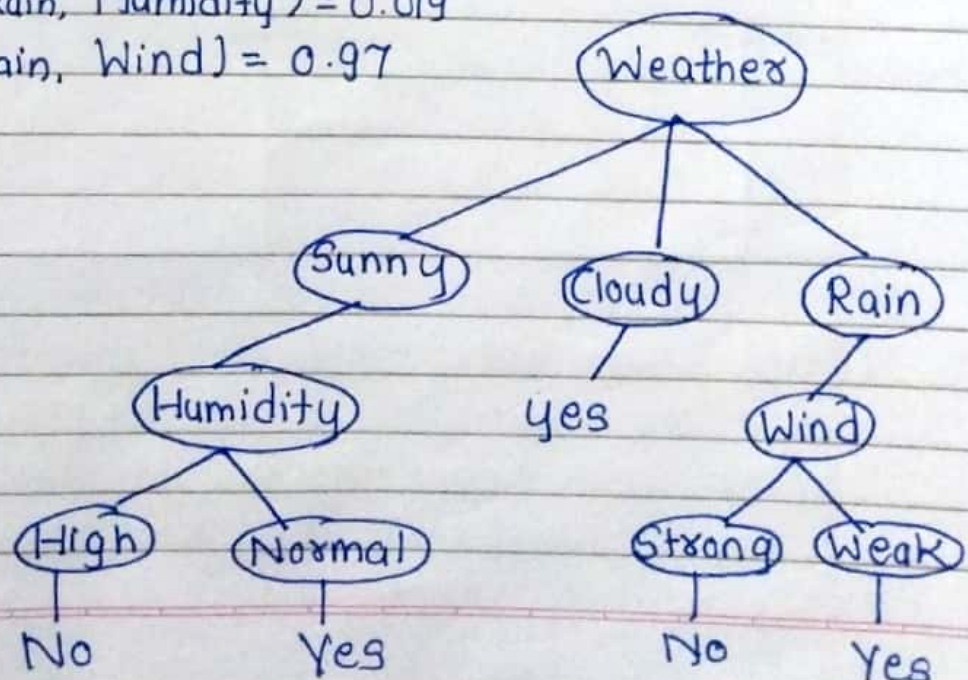 ain, Humidity) = 0.019
ain, Wind) = 0.97
Weather
Sunny Cloudy Rain
Humidity yes Wind
High Normal Strong Weak
No Yes No Yes